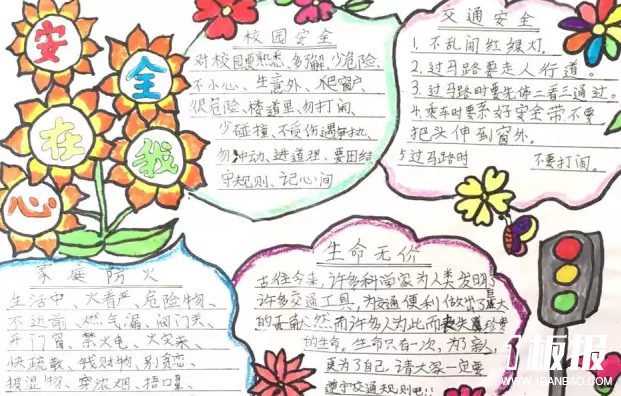 安
全
在
我
心
校园安全
对校园要熟悉、多了解、少危险、
不小心、生意外、爬窗户
很危险、楼道里、勿打闹、
少碰撞、不受伤、遇
勿冲动、进道理、要团结
守规则、记心间
交通安全
1.不乱闯红绿灯.
2.过马路要走人行道。
3.过马路时要先停二看三通过。
4.乘车时要系好安全带不要
把头伸到窗外.
5过马路时 不要打闹。
家庭防火
生活中、火着严、危险物、
不近前、燃气漏、阀门关、
开门窗、禁火电、火突来、
快疏散、钱财物、别贪恋、
披湿物、穿浓烟、捂口鼻、
生命无价
古往今来,许多科学家为人类发明了
许多交通工具,为交通便利做出了重大
的贡献然而许多人为此而丧失最珍贵
的生命,生命只有一次,为了家人
更为了自己,请大家一定要
遵守交通规则吧!!
板报
WWW.1BANBAO.COM